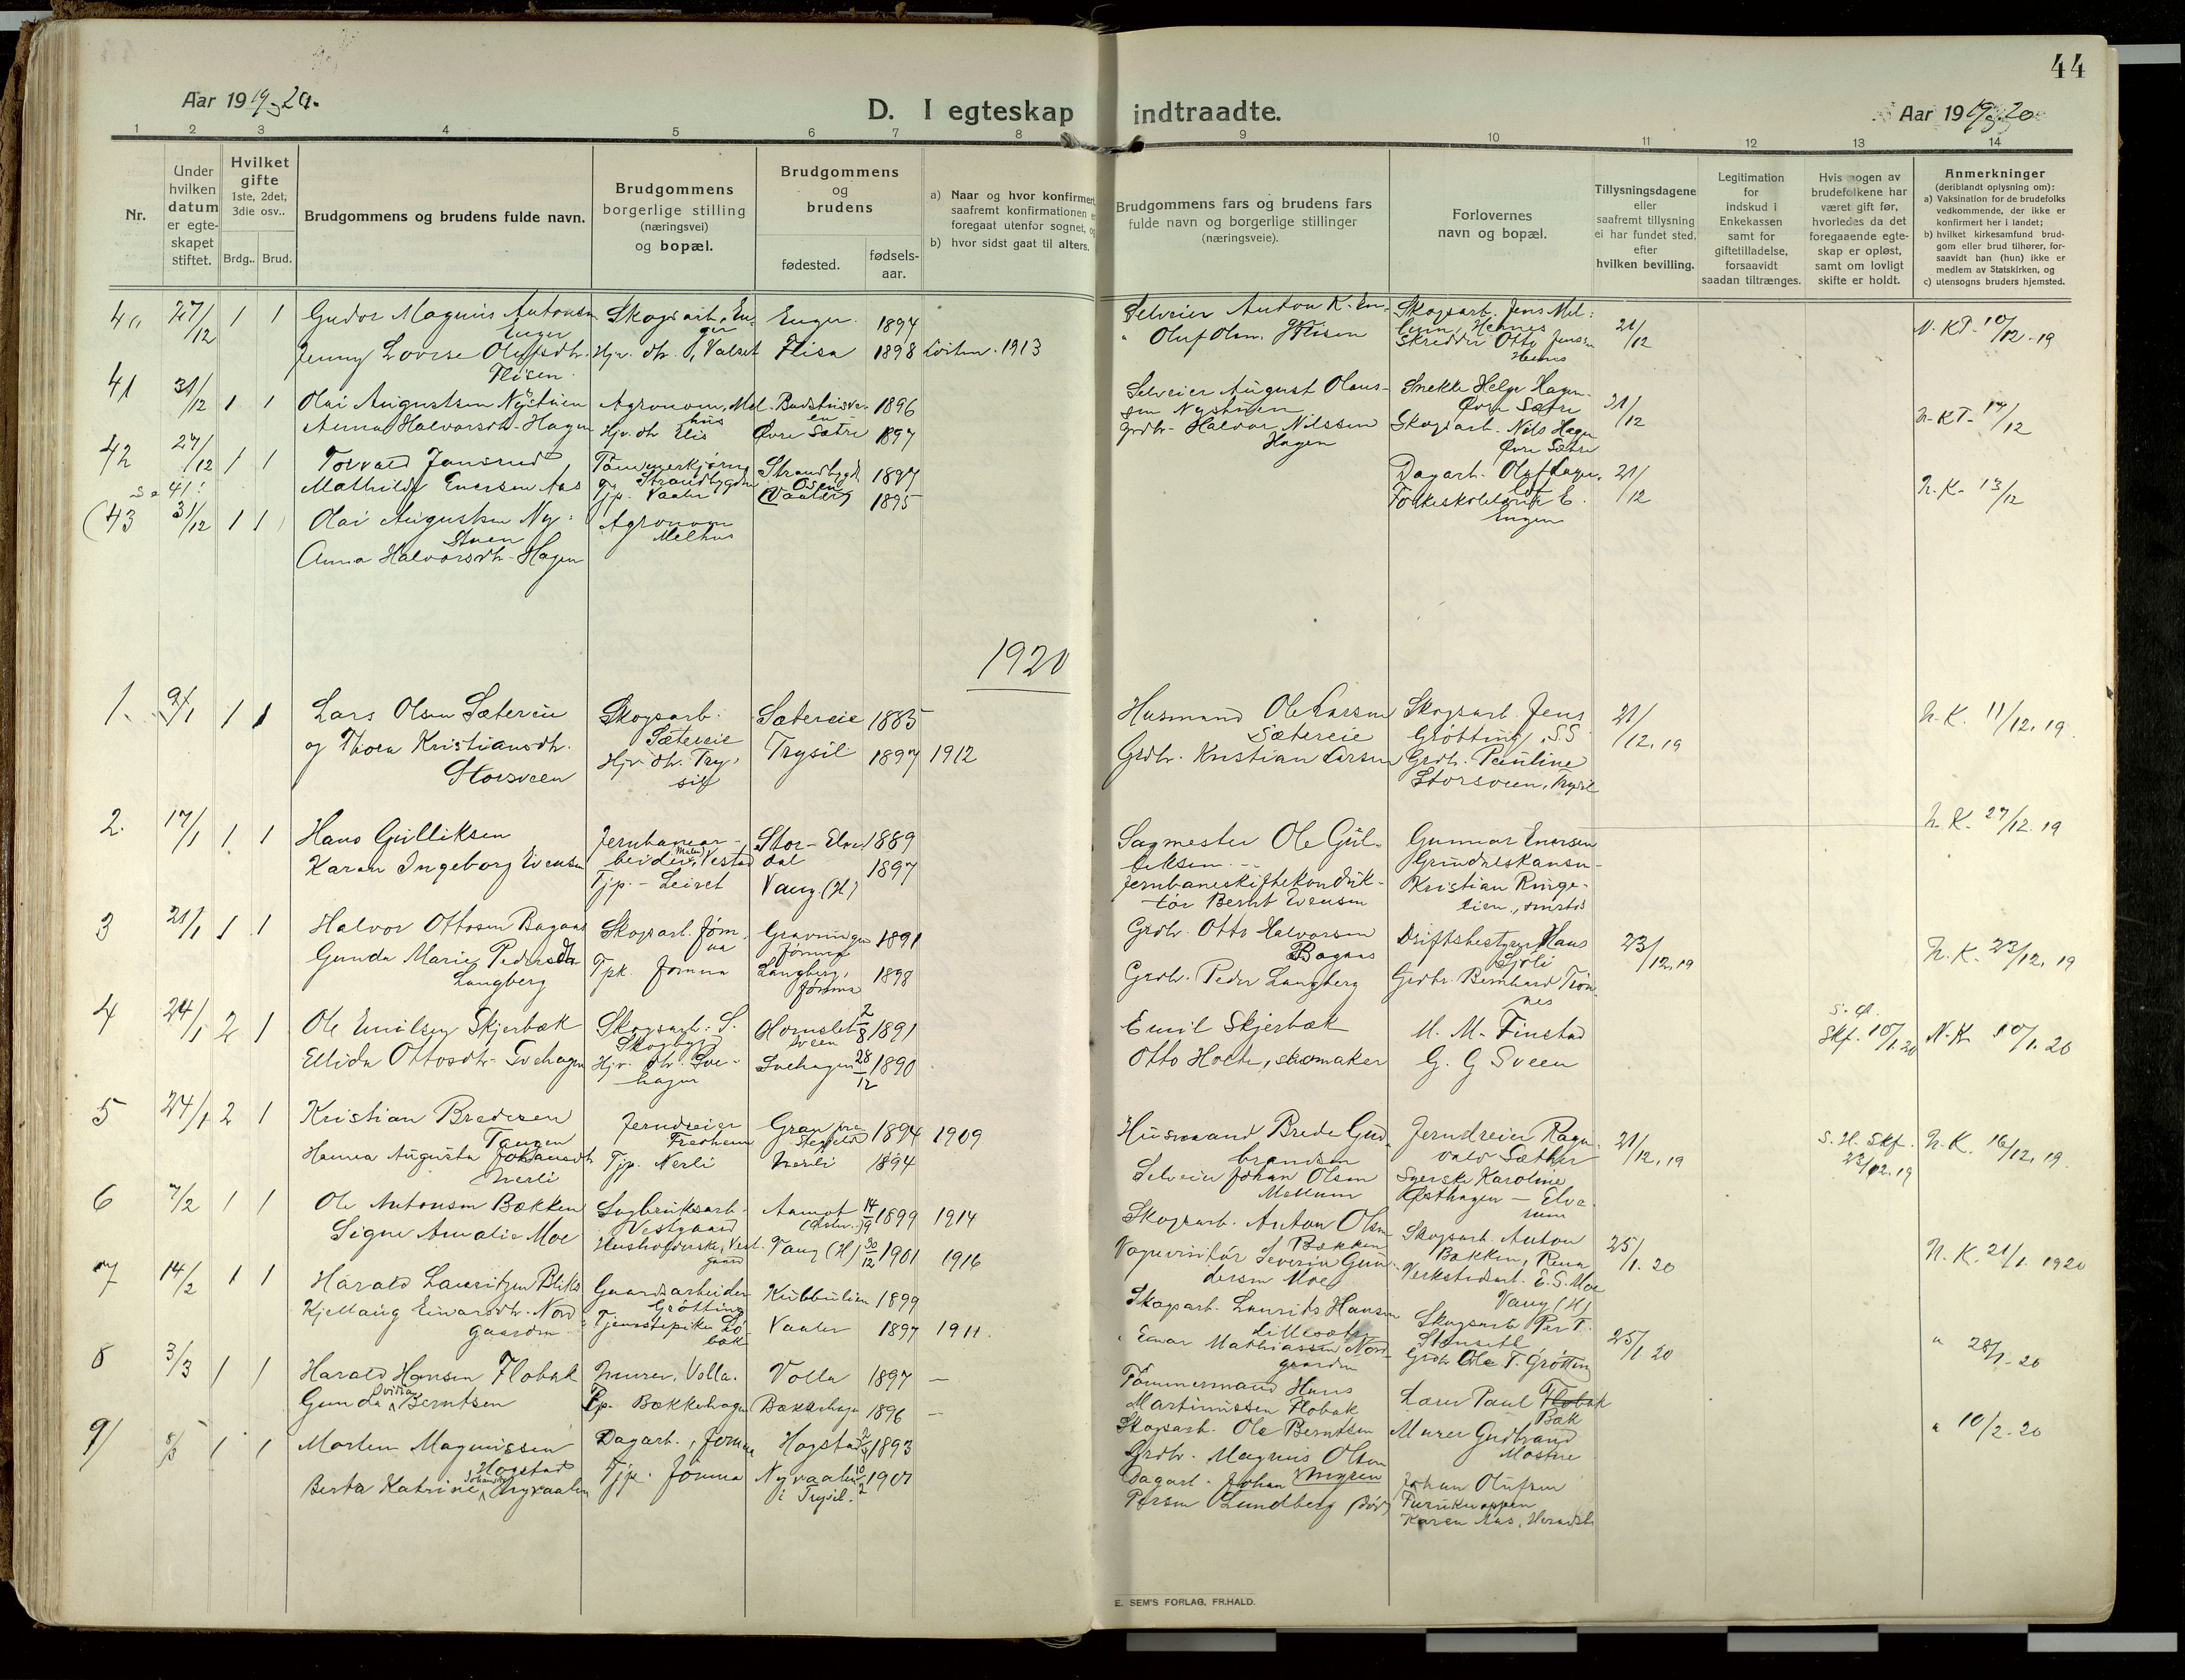 Aar 1919-20.
D. I egteskap indtraadte.
44
Aar 1919-20
1 2 3 4 5 6 7 8 9 10 11 12 13 14
Nr.
Under
hvilken
datum
er egte-
skapet
stiftet.
Hvilket
gifte
1ste, 2det,
3die osv..
Brdg.. Brud.
Brudgommens og brudens fulde navn.
Brudgommens
borgerlige stilling
(næringsvei)
og bopæl.
Brudgommens
og
brudens
fødested.
fødsels-
aar.
a) Naar og hvor konfirmert
saafremt konfirmationen
foregaat utenfor sognet,
b) hvor sidst gaat til alters.
Brudgommens fars og brudens fars
fulde navn og borgerlige stillinger
(næringsveie).
Forlovernes
navn og bopæl.
Tillysningsdagene
eller
saafremt tillysning
ei har fundet sted,
efter
hvilken bevilling.
Legitimation
for
indskud i
Enkekassen
samt for
giftetilladelse,
forsaavidt
saadan tiltrænges.
Hvis nogen av
brudefolkene har
været gift før,
hvorledes da det
foregaaende egte-
skap er opløst,
samt om lovligt
skifte er holdt.
Anmerkninger
(deriblandt oplysning om):
a) Vaksination for de brudefolks
vedkommende, der ikke er
konfirmert her i landet;
b) hvilket kirkesamfund brud-
gom eller brud tilhører, for-
saavidt han (hun) ikke er
medlem av Statskirken, og
c) utensogns bruders hjemsted.
40 27/12 1 1 Gudor Magnus Antonsen
Enger
Skogsarb. En-
ger
Enger 1894
Jenny Lovise Olufsdtr.
Flisen
Hjv. dtr. Valset Flisa 1898 1913
Selveier Anton K. En-
" Oluf Olsn. Flisen
Skogsarb. Jens Mel-
Skredder Otto Jensen
21/12
N. KT. 10/12-19
41 31/12 1 1 Olai Augustsen Nystuen
Agronom, Mel-
hus
1896
Anna Halvorsdtr. Hagen
Hjv. dtr. Øvre Sætre 1897
Selveier August Olaus-
sen Nystuen
Grdbr. Halvor Nilssen
Hagen
Snekker Helge Hagen
Øvre Sætre
Skogsarb. Nils Hagen
Øvre Sætre
21/12
N. KT. 17/12
42 27/12 1 1 Torvald Jansrud
Tømmerkjører
Strandbygden
Strandbygd
Osen 1897
Mathilde Enersen Aas
Tjp. Vaaler (Vaaler) 1895
Dagarb. Olaf
Engen
21/12
N. K. 13/12
Se 41!
(43 31/12 1 1 Olai Augustsen Ny-
stuen
Agronom
Melhus
Anna Halvorsdtr. Hagen
1920
1. 9/1 1 1 Lars Olsen Sætereie
Skogsarb.
Sætereie
Sætereie 1885
og Thora Kristiansdtr.
Storsveen
Hjv. dtr. Try-
sil
Trysil 1897 1912
Husmand Ole Larsen
Sætereie
Grdbr. Kristian Larsen
Skogsarb. Jens
Grøtting, S.S.
Grdbr. Pauline
Storsveen, Trysil
21/12.19
N. K. 11/12.19.
2. 17/1 1 1 Hans Gulliksen
Jernbanear-
beider, Vestad
Stor-Elve-
dal 1889
Karen Ingeborg Evensen
Tjp. - Leiret Vang (H) 1897
Sagmester Ole Gul-
liksen
Jernbaneskiftekonduk-
tør Bernt Evensen
Gunnar Enersen
Kristian Ringe-
lien,
N. K. 27/12.19
3 21/1 1 1 Halvor Ottosen Bagaas
Skogsarb. Jøm-
na
Jømna 1891
Gunda Marie Pedersdtr
Langberg
Tpk. Jømna
Langberg,
Jømna 1898
Grdbr. Otto Halvorsen
Bagaas
Grdbr. Peder Langberg
Driftsbestyrer Hans
Sjøli
Grdbr. Bernhard Trøn-
nes
23/12.19
N. K. 23/12.19
4 24/1 2 1 Ole Emilsen Skjerbæk
Skogsarb. S.
Skogbygd
Hornslet-
sveen 2/8 1891
Ellida Ottosdtr. Svehagen
Hjv. dtr. Sve-
hagen
Svehagen 28/12 1890
Emil Skjerbæk
Otto Holte, skomaker
M. M. Finstad
G. G Sveen
Skf. 10/1.20
N. K. 10/1.20
5 24/1 2 1 Kristian Bredesen
Tangen
Jerndreier
Fredheim
Gran 1894 1909
Hanna Augusta Johansdtr
Nerli
Tjp. Nerli Nerli 1894
Husmand Brede Gud-
brandsen
Selveier Johan Olsen
Mellum
Jerndreier Ragn-
vald Sæther
Syerske Karoline
Østhagen - Elve-
rum
21/12.19
S. H. Skf.
23/12.19
N. K. 16/12.19.
6 7/2 1 1 Ole Antonsen Bækken
Sagbruksarb.
Vestgaard
Aamot 14/9 1899 1914
Signe Amalie Moe
Husholderske, Vest-
gaard
Vang (H) 30/12 1901 1916
Skogsarb. Anton Olsen
Bækken
Vognvisitør Severin Gun-
dersen Moe
Skogsarb. Anton
Bækken, Rena
Verkstedarb. E. S. Moe
Vang (H)
25/1.20
N. K. 21/1.1920
7 14/2 1 1 Harald Lauritzen
Gaardsarbeider
Grøtting
Kubbulien 1899
Kjellaug Einarsdtr. Nord-
gaarden
Tjenestepike
Vaaler 1897 1911.
Skogsarb. Laurits Hansen
Lillesæter
" Einar Mathiassen Nord-
gaarden
Skogsarb. Per T.
Stenseth
Grdbr. Ole T. Grøtting
25/1.20
" 28/1-20
8 3/3 1 1 Harald Hansen Flobak
Murer, Volla.
Volla 1897 —
Gunda Ovidia Berntsen
Tp. Bækkehagen Bækkehagen 1896 —
Tømmermand Hans
Martinussen Flobak
Skogsarb. Ole Berntsen
Lærer Paul Flobak
Bak
Murer Gudbrand
" 10/2-20
9/ 8/3 1 1 Morten Magnussen
Hogstad
Dagarb., Jømna Hogstad 1893
Berta Katrine Johansdtr Nyvaalen
Tjp. Jømna
Nyvaalen
i Trysil. 10/2 1901
Grdbr. Magnus Olsen
Myren
Dagarb. Johan
Persen Lundberg (død)
Johan Olufsen
Furuknappen
Karen Aas, Hernes
E. SEM'S FORLAG, FR.HALD.